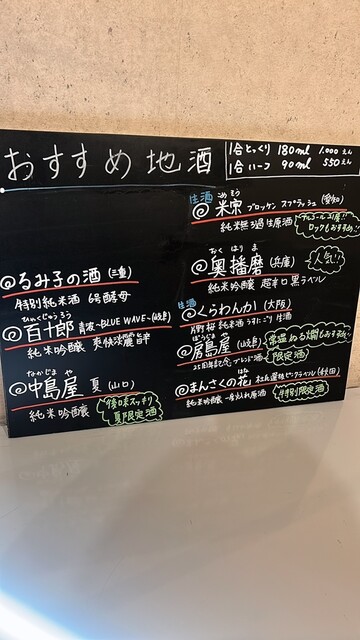 おすすめ地酒
1合とっくり 180ml 1,000えん
1合ハーフ 90ml 550えん
るみ子の酒 (三重)
特別純米酒 6号酵母
ひゃくじゅうろう
百十郎 青波~BLUE WAVE~(岐阜)
純米吟醸 爽快淡麗旨辛
なかじま や
中島屋 夏 (山口)
純米吟醸
後味スッキリ
夏限定酒
生酒
こめ そう
米宗 ブロッケン スプラッシュ (愛知)
純米無濾過生原酒
アルコール21度!!
ロックもおすすめ!!
おく はりま
奥播磨 (兵庫)
純米吟醸 超辛口 黒ラベル
人気!!
生酒
くらわんか (大阪)
片野桜 純米酒 うすにごり 生酒
島屋 (岐阜)
25周年記念 ブレンド酒
常温ぬる燗もおすすめ
限定酒
はな
まんさくの花 杜氏選抜ピンクラベル (秋田)
純米吟醸 一度火入れ原酒
特別限定酒